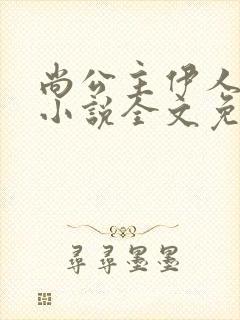 尚公主伊人
小说全文免
寻寻墨墨